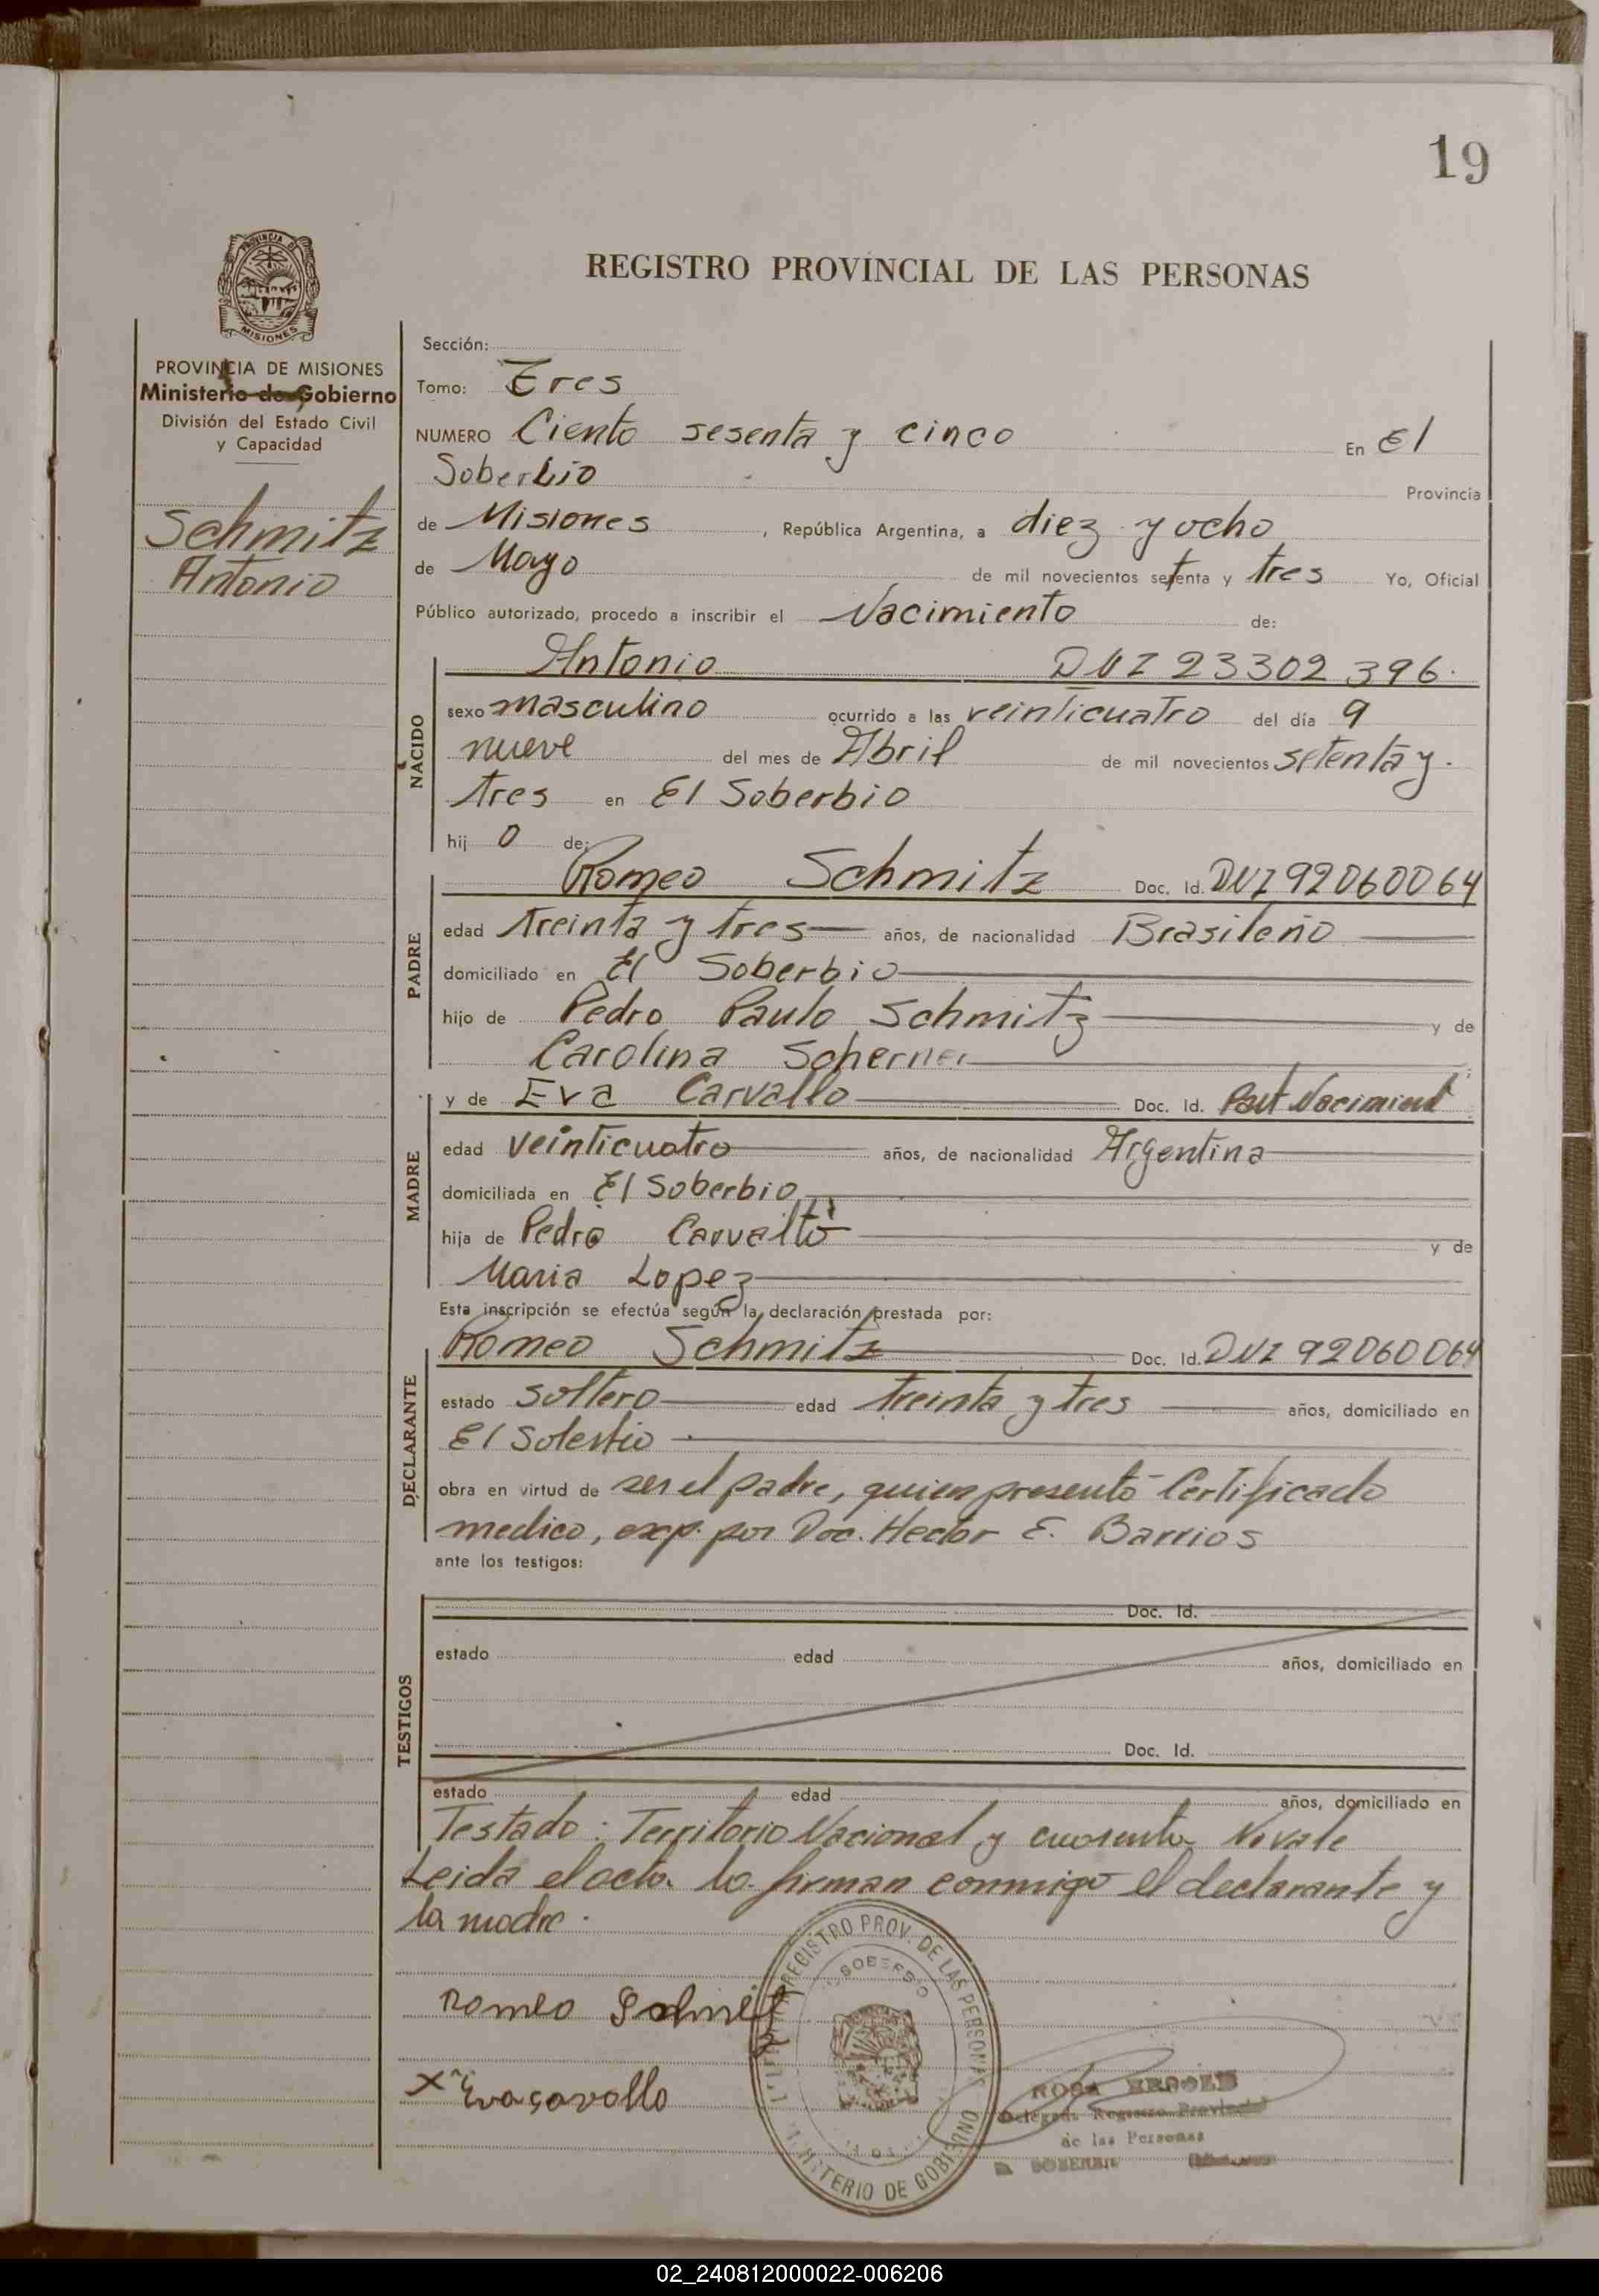 19
PROVINCIA DE MISIONES
REGISTRO PROVINCIAL DE LAS PERSONAS
PROVINCIA DE MISIONES
Ministerio de Gobierno
División del Estado Civil
y Capacidad
Schmitz
Antonio
Sección:
Tomo: Tres
NUMERO Ciento sesenta y cinco En El
Soberbio Provincia
de Misiones, República Argentina, a diez y ocho
de Mayo de mil novecientos setenta y tres Yo, Oficial
Público autorizado, procedo a inscribir el Nacimiento de:
NACIDO
Antonio DNI 23302396.
sexo masculino ocurrido a las veinticuatro del día 9
nueve del mes de Abril de mil novecientos setenta y
tres en El Soberbio
hij o de:
PADRE
Romeo Schmitz Doc. Id. DNI 92060064
edad treinta y tres años, de nacionalidad Brasileño
domiciliado en El Soberbio
hijo de Pedro Paulo Schmitz y de
Carolina Scherner
MADRE
y de Eva Carvallo Doc. Id. Part Nacimient
edad veinticuatro años, de nacionalidad Argentina
domiciliada en El Soberbio
hija de Pedro Carvallo y de
Maria Lopez
Esta inscripción se efectúa según la declaración prestada por:
DECLARANTE
Romeo Schmitz Doc. Id. DNI 92060064
estado soltero edad treinta y tres años, domiciliado en
El Soberbio
obra en virtud de ser el padre, quien presentó Certificado
medico, exp. por Doc. Hector E. Barrios
ante los testigos:
TESTIGOS
Doc. Id.
estado edad años, domiciliado en
Doc. Id.
estado edad años, domiciliado en
Testado: Territorio Nacional y cuarenta No vale
Leida el acta la firman conmigo el declarante y
la madre.
REGISTRO PROV. DE LAS PERSONAS
SOBERBIO
MINISTERIO DE GOBIERNO
Romeo Schmitz
X Eva Carvallo
ROSA
Delegada Registro Provincial
de las Personas
SOBERBIO
02_240812000022-006206